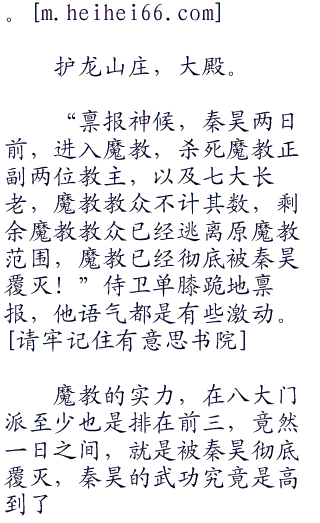 。[m.heihei66.com]
护龙山庄，大殿。
“禀报神候，秦昊两日
前，进入魔教，杀死魔教正
副两位教主，以及七大长
老，魔教教众不计其数，剩
余魔教教众已经逃离原魔教
范围，魔教已经彻底被秦昊
覆灭！”侍卫单膝跪地禀
报，他语气都是有些激动。
[请牢记住有意思书院]
魔教的实力，在八大门
派至少也是排在前三，竟然
一日之间，就是被秦昊彻底
覆灭，秦昊的武功究竟是高
到了